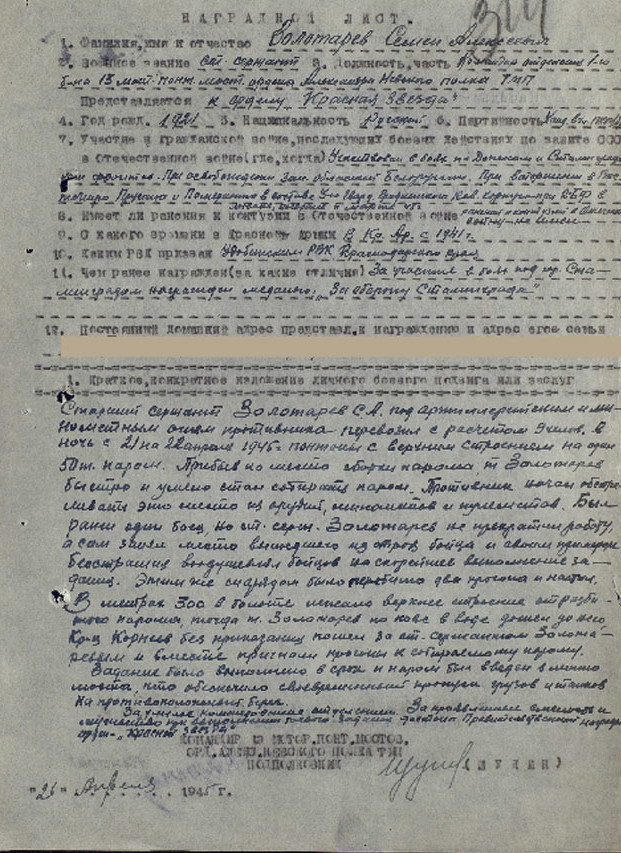 НАГРАДНОЙ ЛИСТ.
1. Фамилия, имя и отчество Золотарев Семен Алексеевич
2. Военное звание ст. сержант 3. Должность, часть Командир отделения 1-го
б-на 13 мот. понт. мост. ордена Александра Невского полка РГК
Представляется к ордену "Красная звезда"
4. Год рожд. 1921 5. Национальность Русский 6. Партийность Канд. ВКП(б)
7. Участие в гражданской войне, последующих боевых действиях по защите СССР
в Отечественной войне (где, когда) Участвовал в боях на Донском и Сталинград-
ском фронтах. При освобождении Белоруссии. При вторжении в Вос-
точную Пруссию и Померанию в составе 3-го Гвард. Кав. Корпуса 2 БФ в
8. Имеет ли ранения и контузии в Отечественной войне
9. С какого времени в Красной Армии В Кр. Ар. с 1941 г.
10. Каким РВК призван Удобненским РВК Краснодарского края
11. Чем ранее награжден (за какие отличия) За участие в боях под гор. Ста-
линградом награжден медалью "За оборону Сталинграда"
12. Постоянный домашний адрес представл. к награждению и адрес его семьи
1. Краткое, конкретное изложение личного боевого подвига или заслуг
Старший сержант Золотарев С.А. под артиллерийским и ми-
нометным огнем противника перевозил с расчетом 9 чел. в
ночь с 21 на 22 апреля 1945 г. понтоны с верхним строением на один
50 т. паром. Прибыв на место сборки парома т. Золотарев
быстро и умело стал собирать паром. Противник начал обстре-
ливать это место из орудий, минометов и пулеметов. Был
ранен один боец, но ст. серж. Золотарев не прекратил работу,
а сам занял место вышедшего из строя бойца и своим примером
бесстрашия воодушевлял бойцов на скорейшее выполнение за-
дания. Этим же снарядом было перебито два прогона и настил.
В метрах 300 в болоте лежало верхнее строение от разби-
того парома, тогда т. Золотарев по пояс в воде дошел до него,
Кр-ц Корнеев без приказания пошел за ст. сержантом Золота-
ревым и вместе пригнали прогоны к собираемому парому.
Задание было выполнено в срок и паром был введен в линию
моста, что обеспечило своевременный пропуск грузов и танков
на противоположный берег.
За умелое командование отделением. За проявленные смелость и
мужество при выполнении боевого задания достоин Правительственной награды
орден "Красная звезда"
КОМАНДИР 13 МОТОР. ПОНТ. МОСТОВ.
ОРД. АЛЕКС. НЕВСКОГО ПОЛКА РГК
ПОДПОЛКОВНИК
"26" Апреля 1945 г.